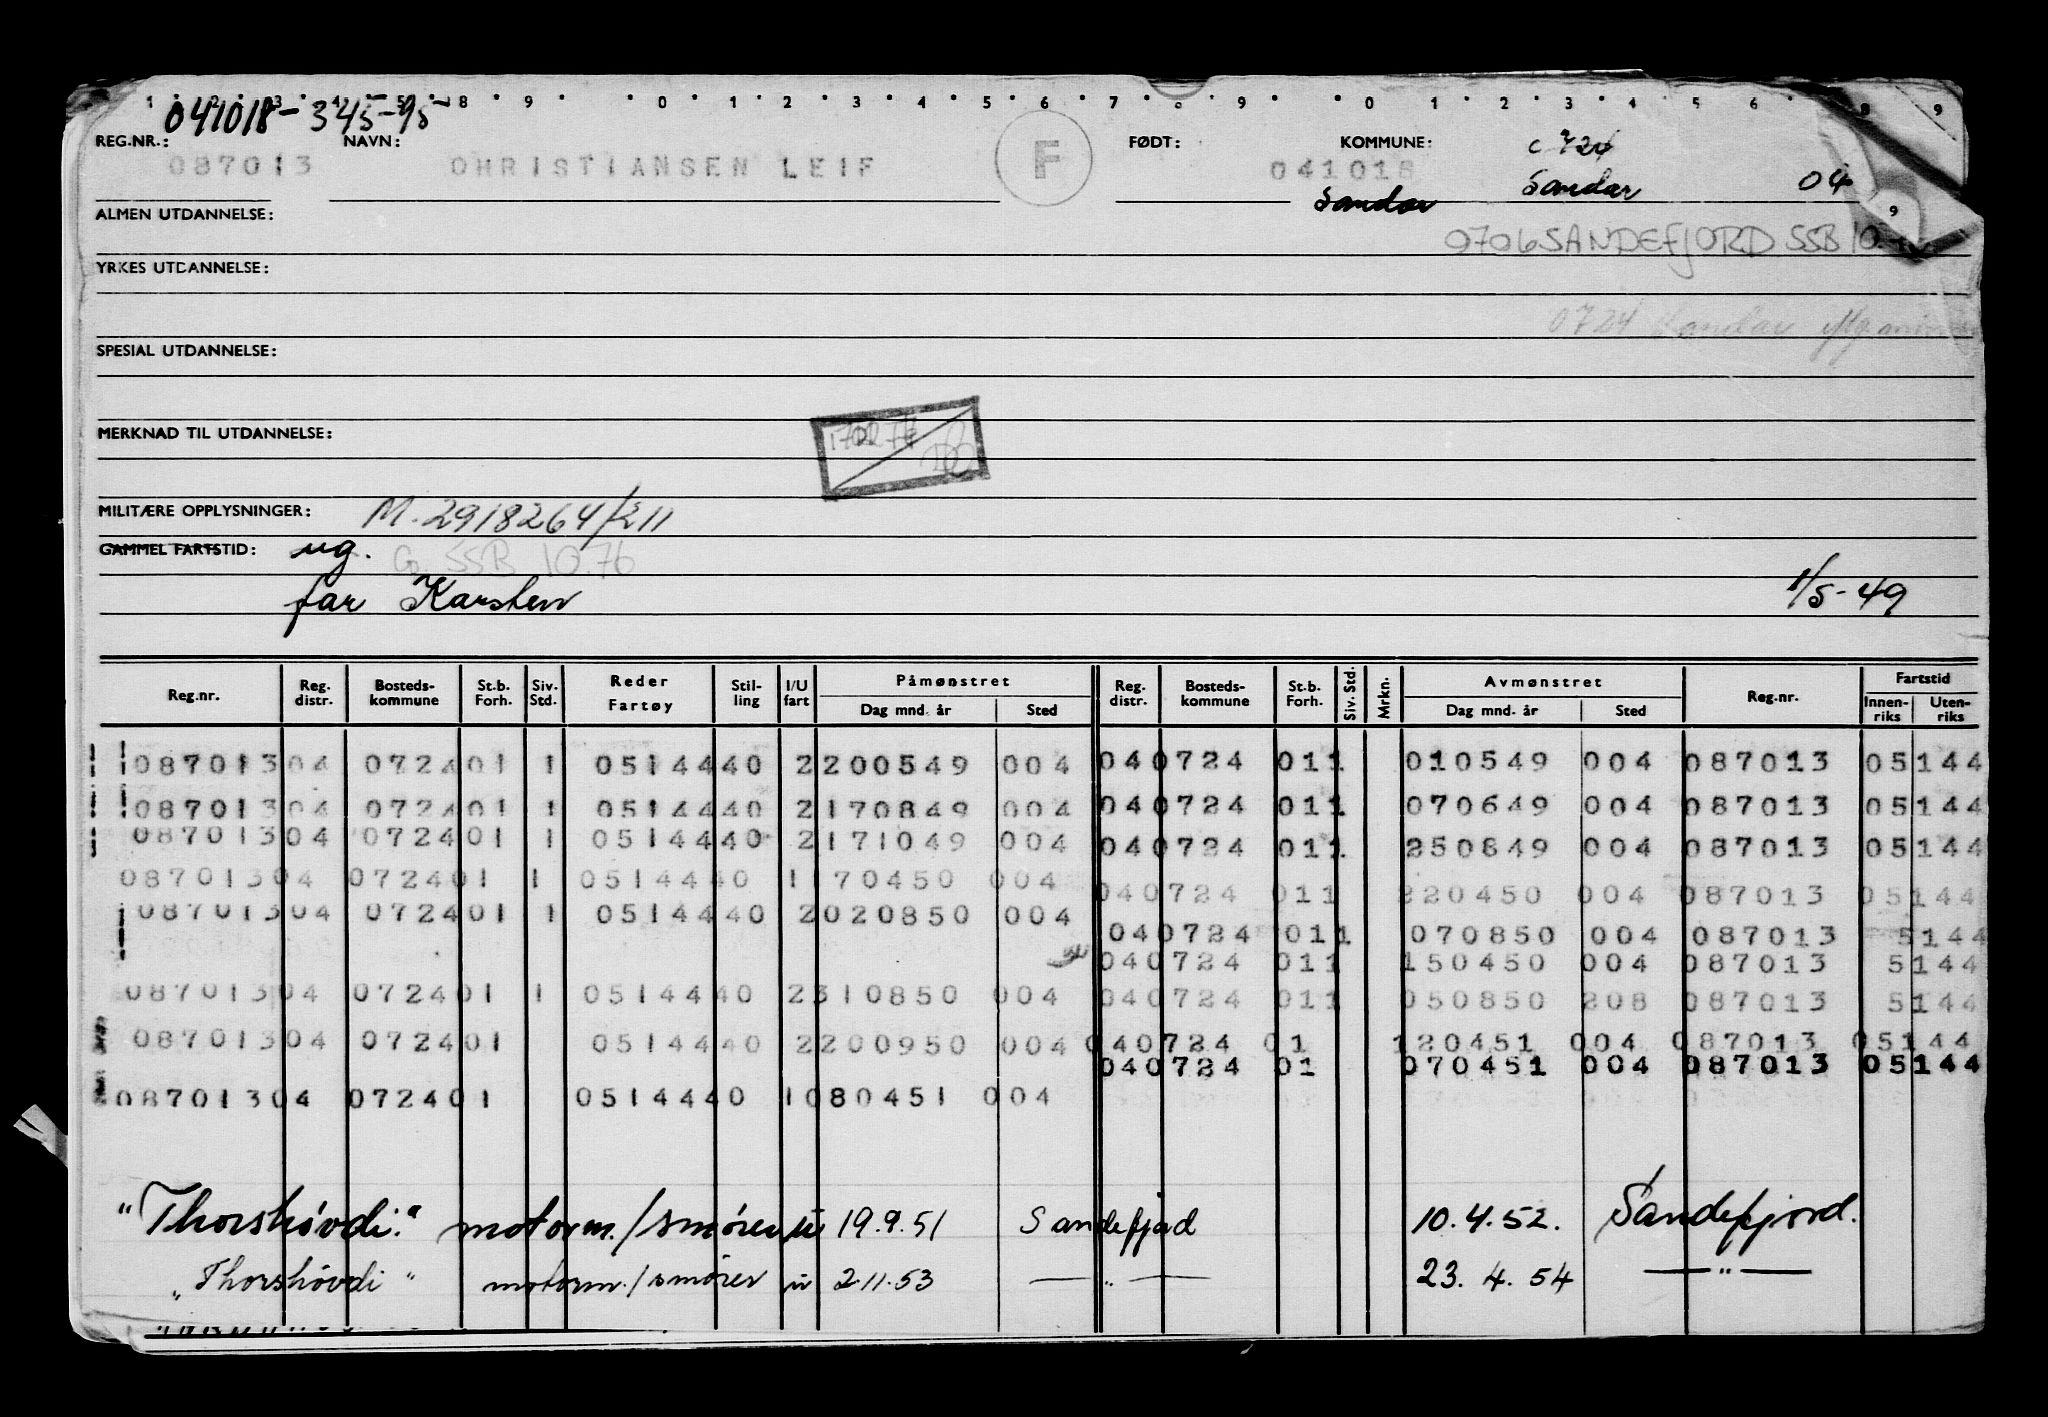 1 2 3 4 5 8 9 0 1 2 3 4 5 6 7 8 9 0 1 2 3 4 5 6 8 9
041018-345-95
REG.NR.: NAVN: FØDT: KOMMUNE:
087013 CHRISTIANSEN LEIF F 041018
Sandar Sandar 04
ALMEN UTDANNELSE: 9
0706 SANDEFJORD SSB 10.
YRKES UTDANNELSE:
0724 Sandar
SPESIAL UTDANNELSE:
MERKNAD TIL UTDANNELSE:
MILITÆRE OPPLYSNINGER: M. 2918264/211
GAMMEL FARTSTID: ug. G. SSB 10.76
far Karsten 1/5-49
Reg.nr. Reg. distr. Bosteds-kommune St.b. Forh. Siv. Std. Reder Fartøy Stil-ling I/U fart Påmønstret Dag mnd. år Sted Reg. distr. Bosteds-kommune St.b. Forh. Siv. Std. Mrkn. Avmønstret Dag mnd. år Sted Reg.nr. Fartstid Innen-riks Uten-riks
087013 04 0724 01 1 05144 40 2 200549 004 04 0724 01 1 1 010549 004 087013 05144
087013 04 0724 01 1 05144 40 2 170849 004 04 0724 01 1 1 070649 004 087013 05144
087013 04 0724 01 1 05144 40 2 171049 004 04 0724 01 1 1 250849 004 087013 05144
087013 04 0724 01 1 05144 40 1 170450 004 04 0724 01 1 220450 004 087013 05144
087013 04 0724 01 1 05144 40 2 020850 004
04 0724 01 1 1 070850 004 087013 5144
04 0724 01 1 150450 004 087013 5144
087013 04 0724 01 1 05144 40 2 310850 004 04 0724 01 1 050850 208 087013 5144
087013 04 0724 01 05144 40 2 200950 004 04 0724 01 120451 004 087013 05144
04 0724 01 070451 004 087013 05144
087013 04 0724 01 05144 40 1 080451 004
"Thorshøvdi." motorm./smører u 19.9.51 Sandefjord 10.4.52. Sandefjord.
"Thorshøvdi" motorm./smører u 2.11.53 — " — 23. 4. 54 — " —